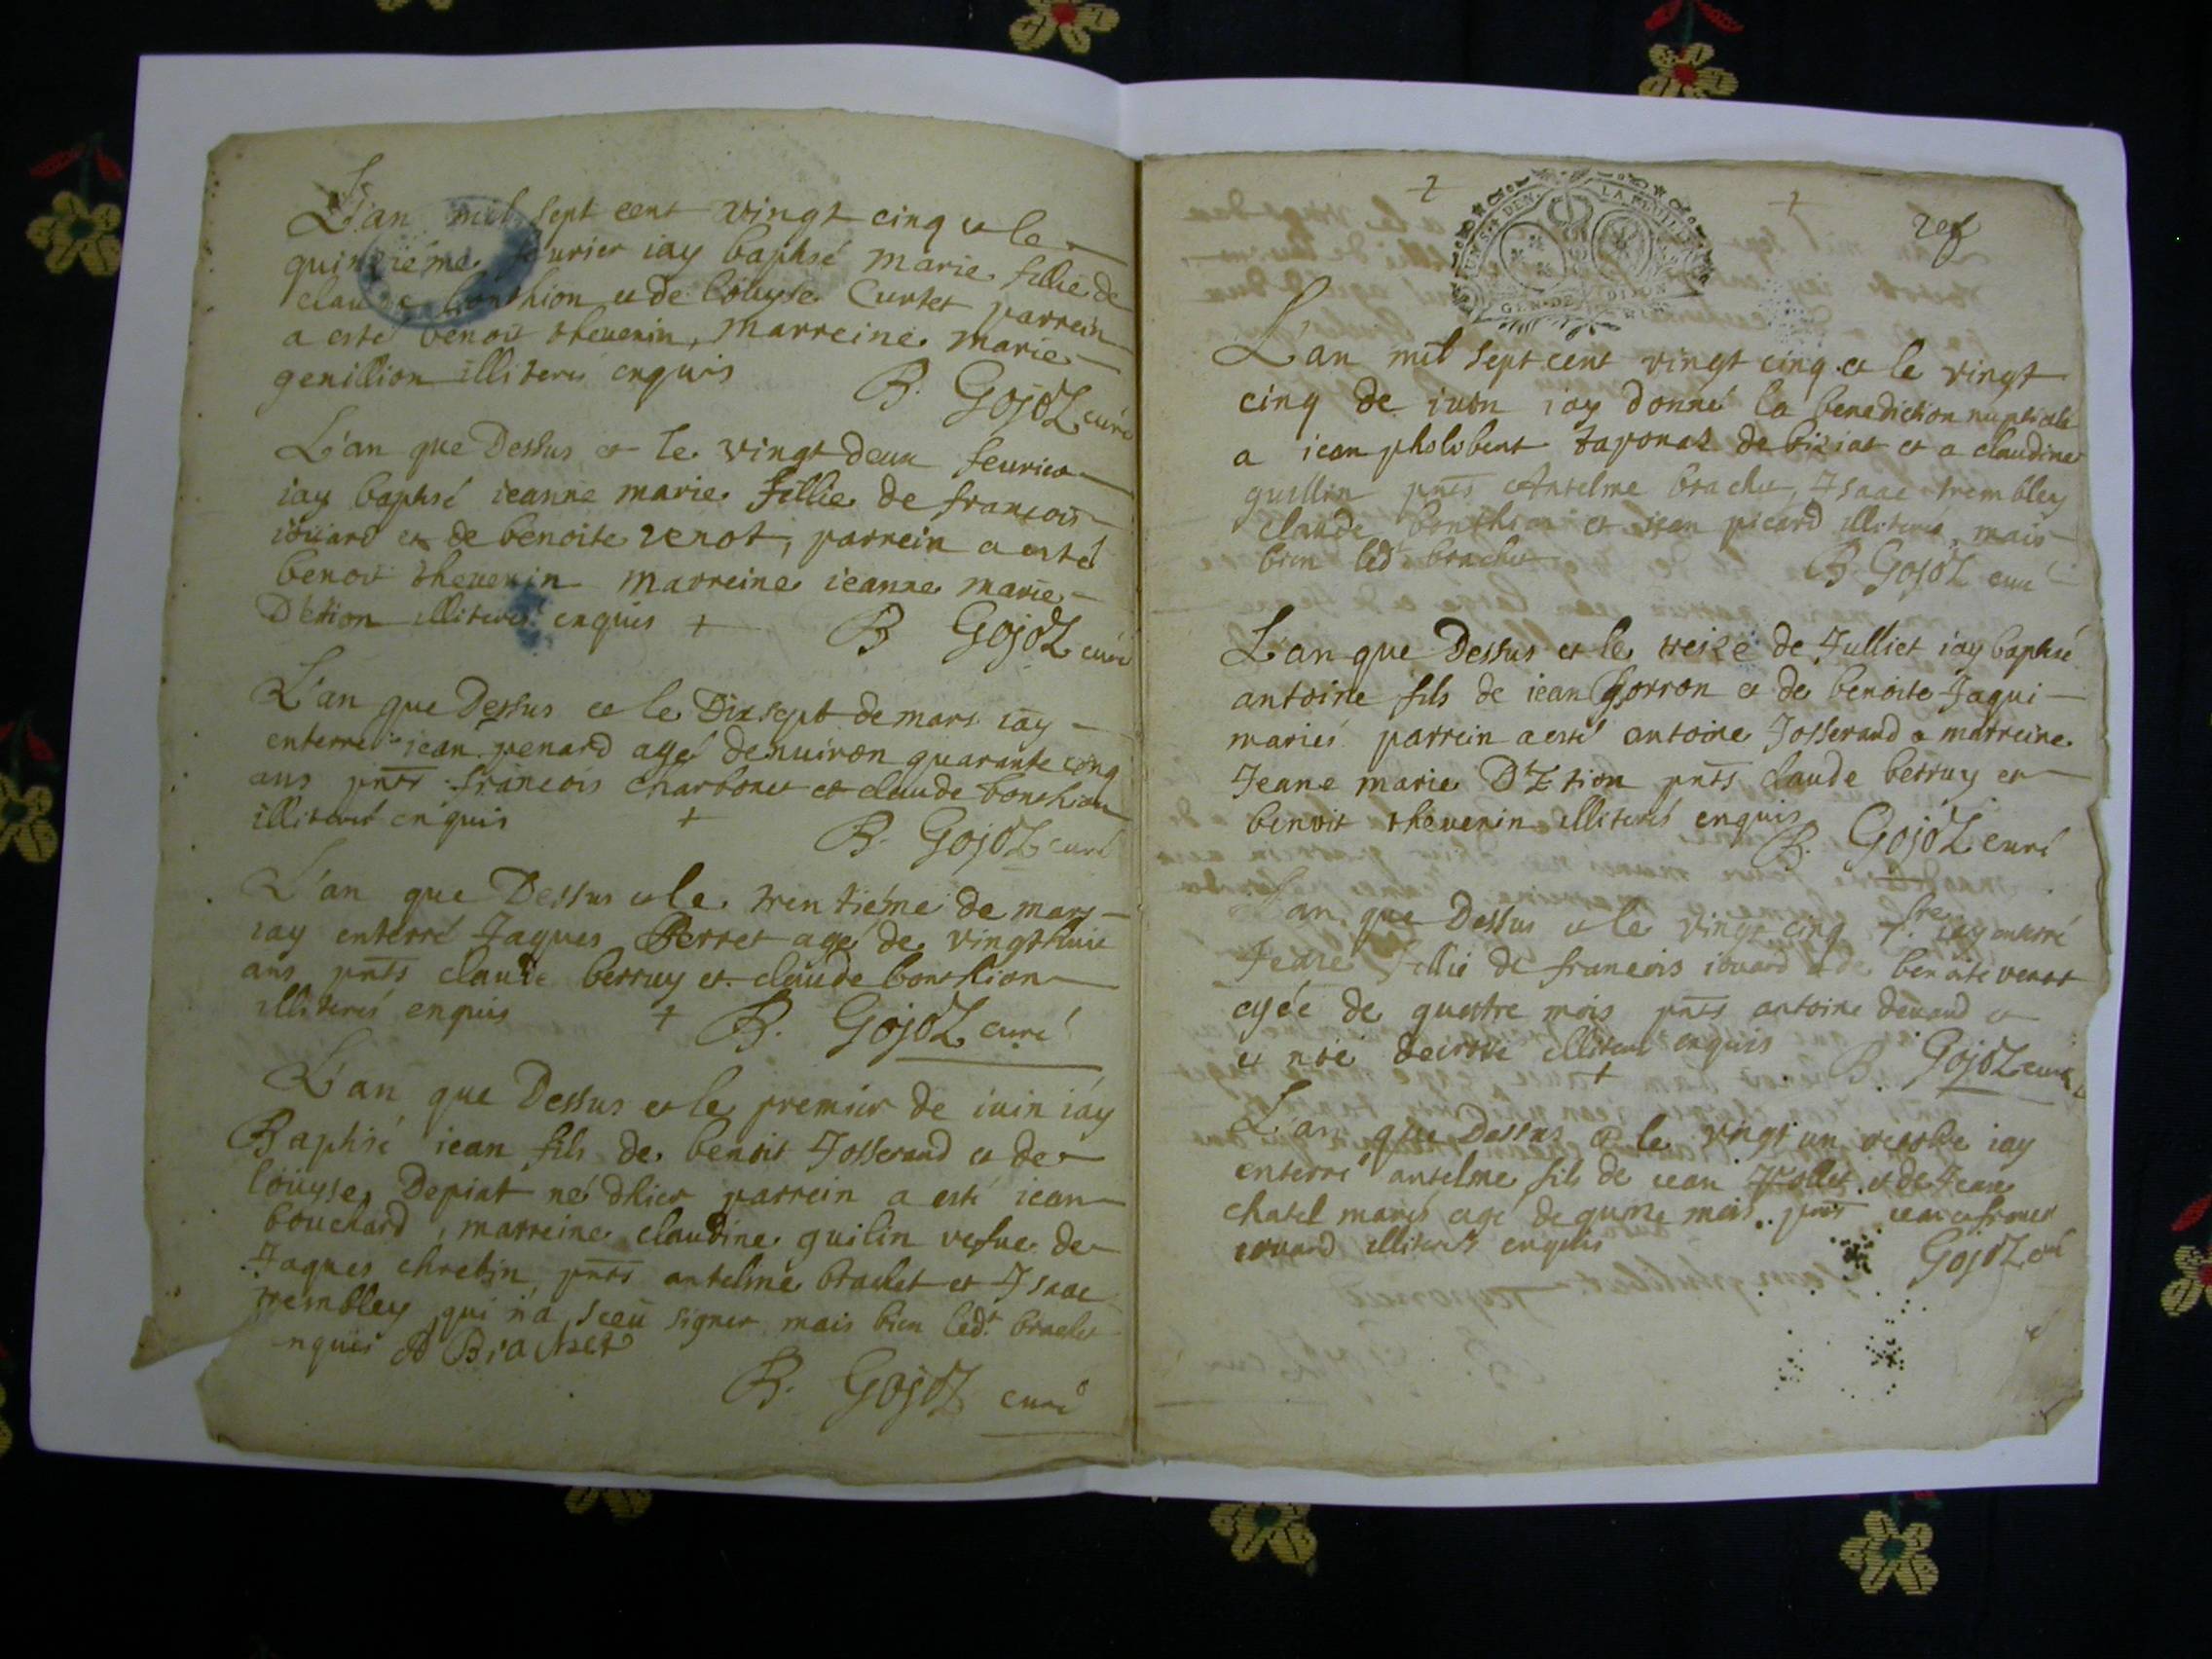 L'an mil sept cent vingt cinq et le
quinziéme feurier iay baptisé marie fillie de
claude bonthion et de loüyse Curtet parrein
a esté benoit theuenin, marreine marie
genillion illiterés enquis
B. Gojoz curé
L'an que Dessus et le vingt deux feurier
iay baptisé ieanne marie fillie de francois
ioüard et de benoite venot, parrein a esté
benoit theuenin marreine ieanne marie
D'étion illiterés enquis +
B Gojoz curé
L'an que Dessus et le Dix sept de mars iay
enterré iean penard agé denuiron quarante cinq
ans pnts francois charbonet et claude bonthion
illiterés enquis +
B. Gojoz curé
L'an que Dessus et le trentiéme de mars
iay enterré Jaques Perret agé de vingt huit
ans pnts claude berruy et claude bonthion
illiterés enquis +
B. Gojoz curé
L'an que Dessus et le premier de iuin iáy
Baptisé iean fils de benoit Josserand et de
loüyse Depiat né d'hier parrein a esté iean
bouchard, marreine claudine guilin vefue de
Jaques chretin pnts antelme brachet et Isaac
trembley qui n'a sceu signer mais bien ledt brachet
nquis A Brachet
B. Gojoz curé
GEN DE DIJON
L'an mil sept cent vingt cinq et le vingt
cinq de iuin iay donné la benediction nuptiale
a iean pholobert taponat de biziat et a claudine
guillin pnts Antelme brachet, Isaac trembley
claude bonthion et iean picard illiterés, mais
bien ledt brachet
B. Gojoz curé
L'an que Dessus et le treize de Julliet iay baptisé
antoine fils de iean Gorron et de benoite Jaqui
mariés parrein a esté antoine Josserand et marreine
Jeane marie D'Etion pnts claude berruy et
benoit theuenin illiterés enquis
B. Gojoz curé
L'an que Dessus et le vingt cinq 7.bre iay enterré
Jeane fillie de francois ioüard et de benoite venot
agée de quattre mois pnts antoine deuaud et
et noé illiterés enquis
+
B. Gojoz curé
L'an que Dessus et le vingt un octobre iay
enterré antelme fils de iean et de Jeane
chatel mariés agé de quinze mois pnts iean et francois
iouard illiterés enquis
Gojoz curé